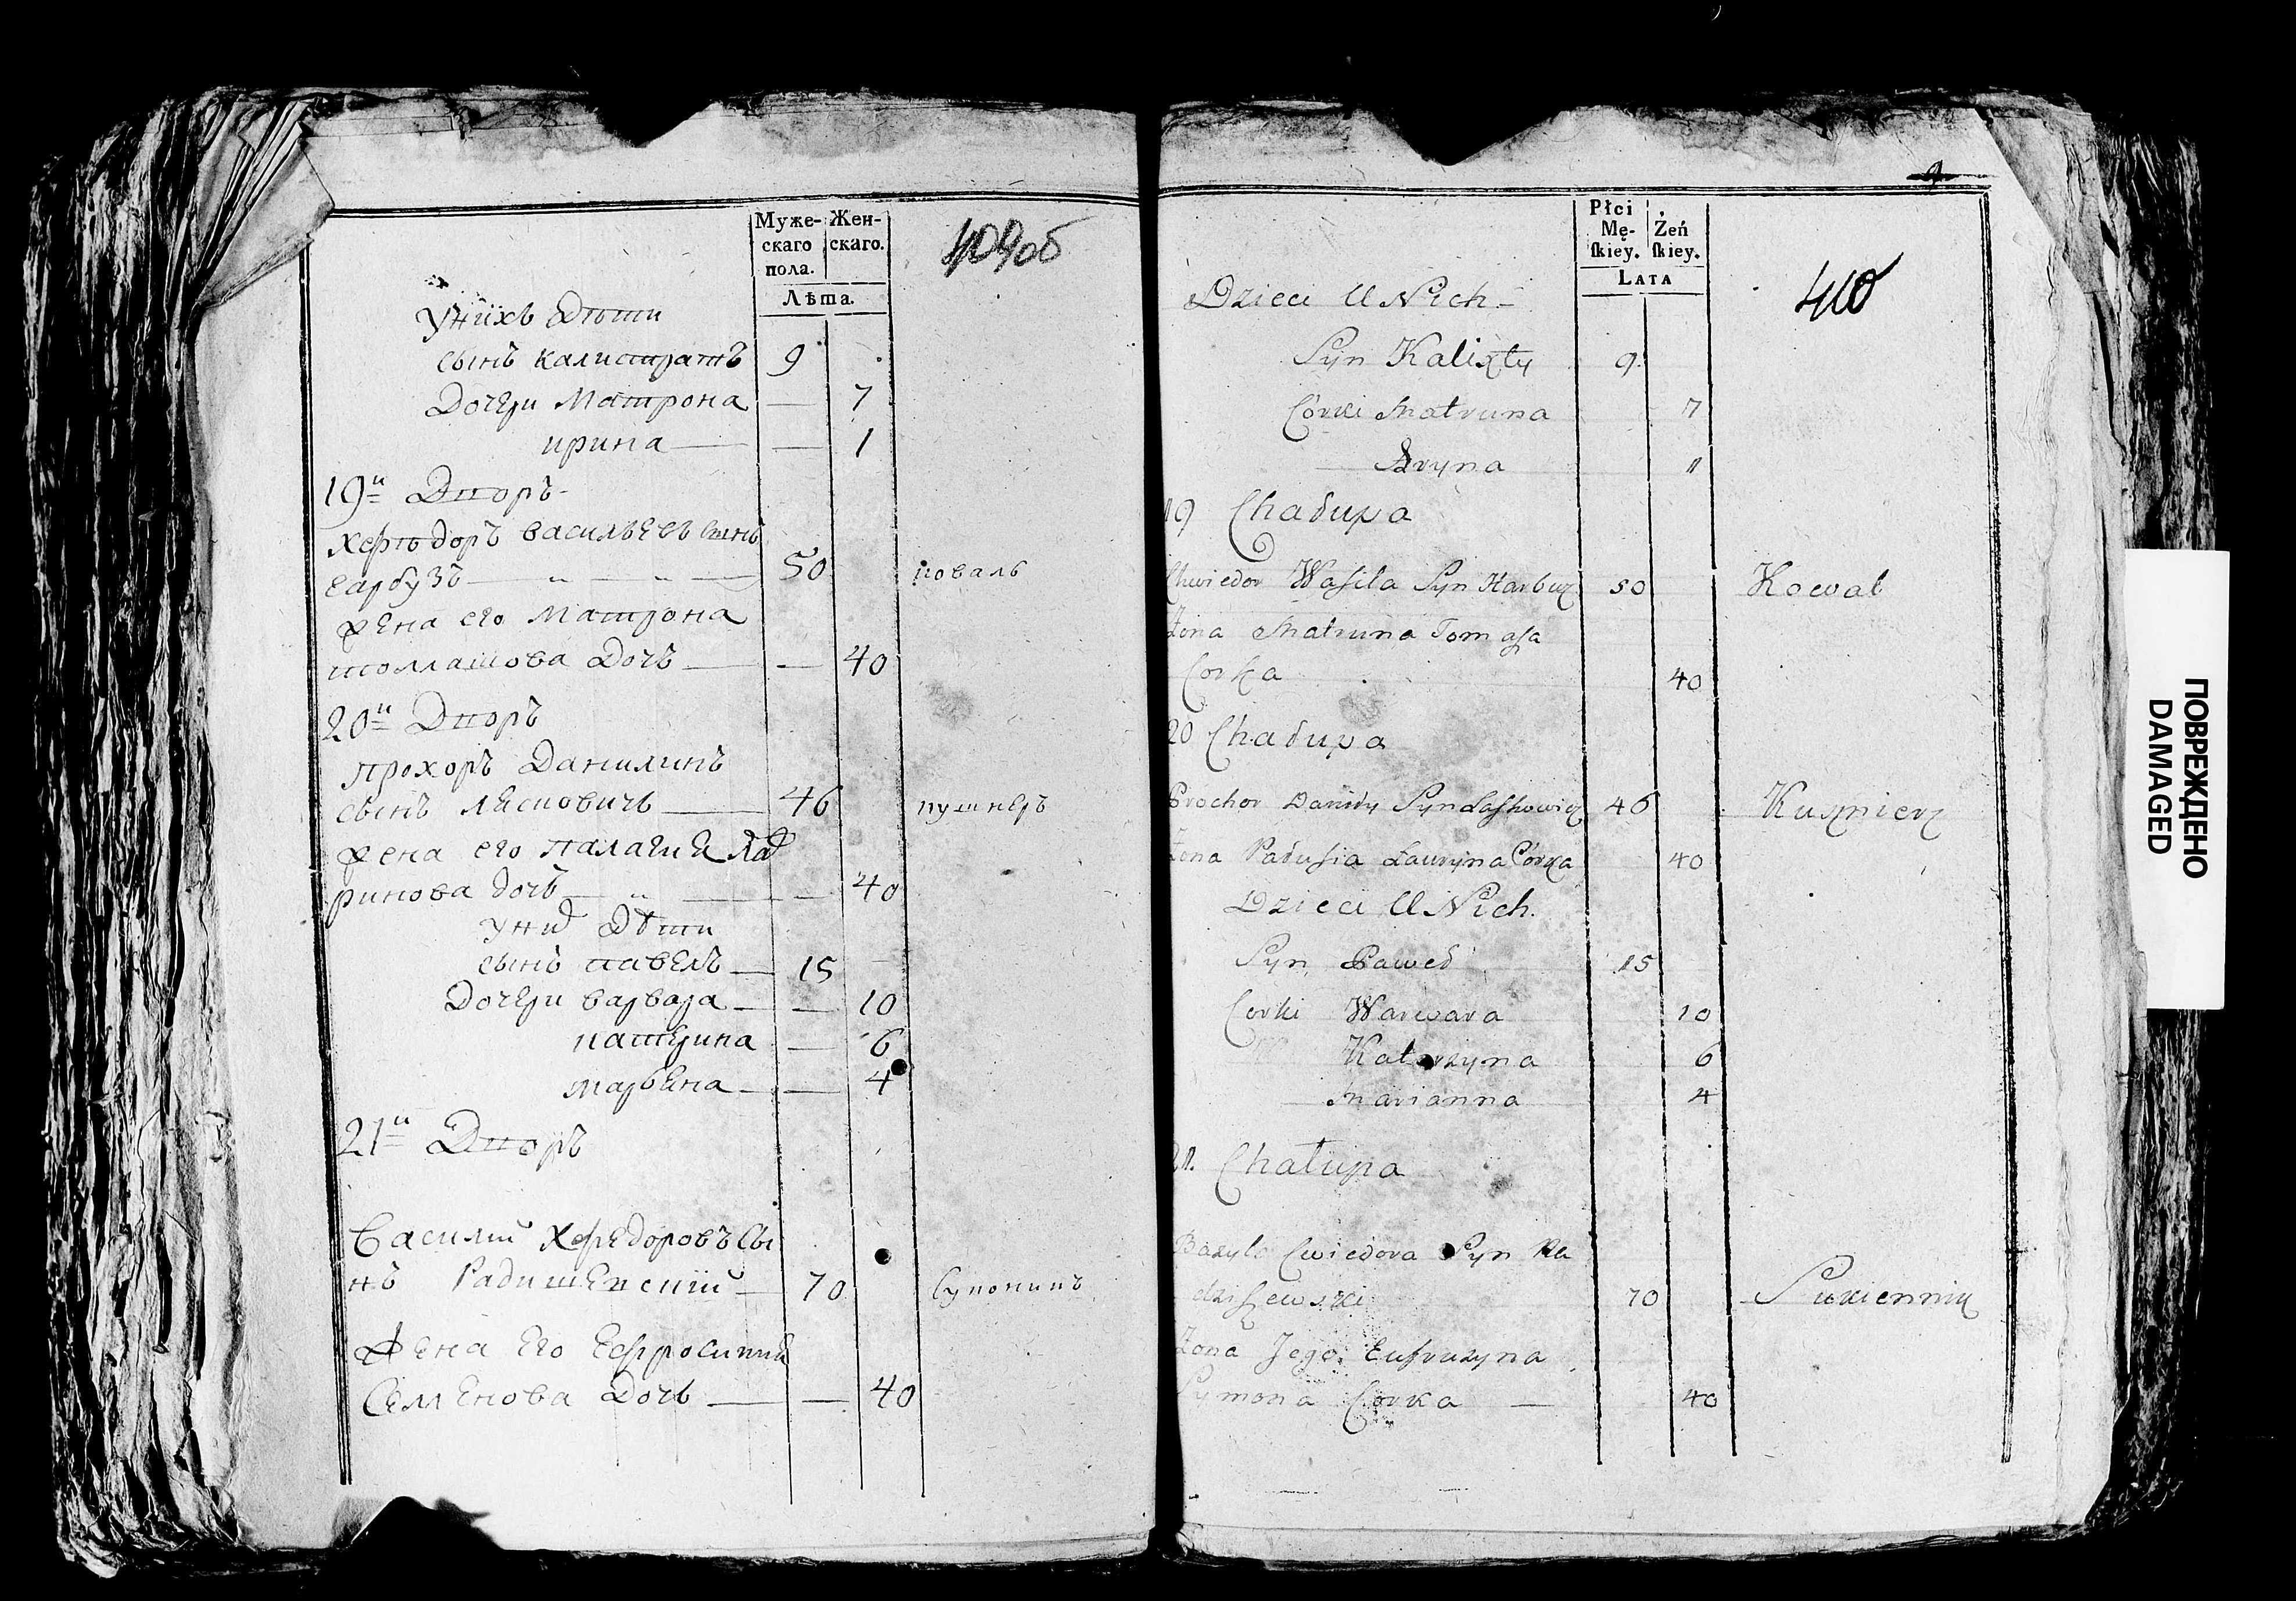 Муже-
скаго
пола.
Жен-
скаго.
Лѣта.
409об
унихъ Дѣти
сынъ калистратъ 9
Дочери Матрона — 7
ирина — — 1
19й Дворъ
Хѳѣдоръ васильевъ сынъ
гарбузъ — 50 коваль
жена его Матрона
томашова Дочь — — 40
20й Дворъ
прохоръ Данилинъ
сынъ ласковичъ — 46 кушнеръ
жена его палагиея ла
ринова дочь — — 40
у них Дѣти
сынъ павелъ — 15 —
Дочери варвара — — 10
катерина — 6
марьена — — 4
21й Дворъ
Василий Хѳедоровъ Сы
нъ Радишевский — 70 Суконникъ
Жена Его Ефросиния
Семенова Дочь — — 40
Płci
Mę-
ſkiey.
Żeń
ſkiey.
LATA
410
Dzieci U Nich
Syn Kalixty 9
Córki Matruna 7
Aryna 1
19 Chałupa
Chwiedor Wasila Syn Harbuz 50 Kowal
Żona Matruna Tomasa
Corka 40
20 Chałupa
Prochor Daniły Syn Laskowicz 46 Kusznierz
Żona Pałusia Lauryna Córka 40
Dzieci U Nich.
Syn Paweł 15
Corki Warwara 10
Katarzyna 6
Marianna 4
21. Chałupa
Bazyli Cwiedora Syn Ra
dziszewski 70 Sukiennik
Żona Jego Eufruzyna
Symona Corka — 40
ПОВРЕЖДЕНО
DAMAGED